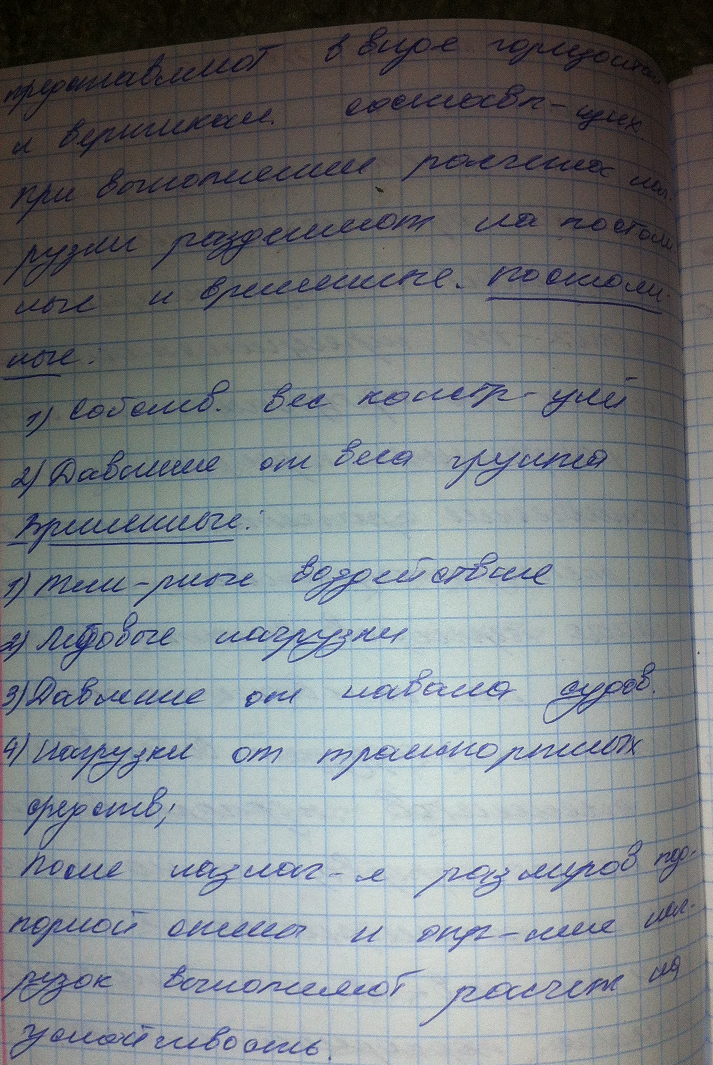 представляют в виде горизонтал.
и вертикал. составл-щих.
При выполнении расчетах наг-
рузки разделяют на постоян-
ные и временные. Постоян-
ные:
1) Собств. вес констр-уций
2) Давление от веса грунта
Временные:
1) тем-рные воздействие
2) Ледовые нагрузки
3) Давление от навала судов.
4) Нагрузки от транспортных
средств;
После назнач-я размеров под-
порной стены и опр-ние наг-
рузок выполняют расчет на
устойчивость.